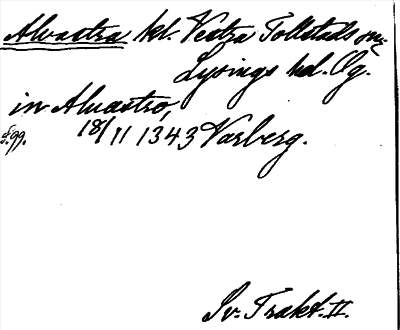 Alvastra kl. Vestra Tollstads sn
Lysings hd. Ög.
in Alvastro,
18/11 1343 Varberg.
Sv. Trakt. II.